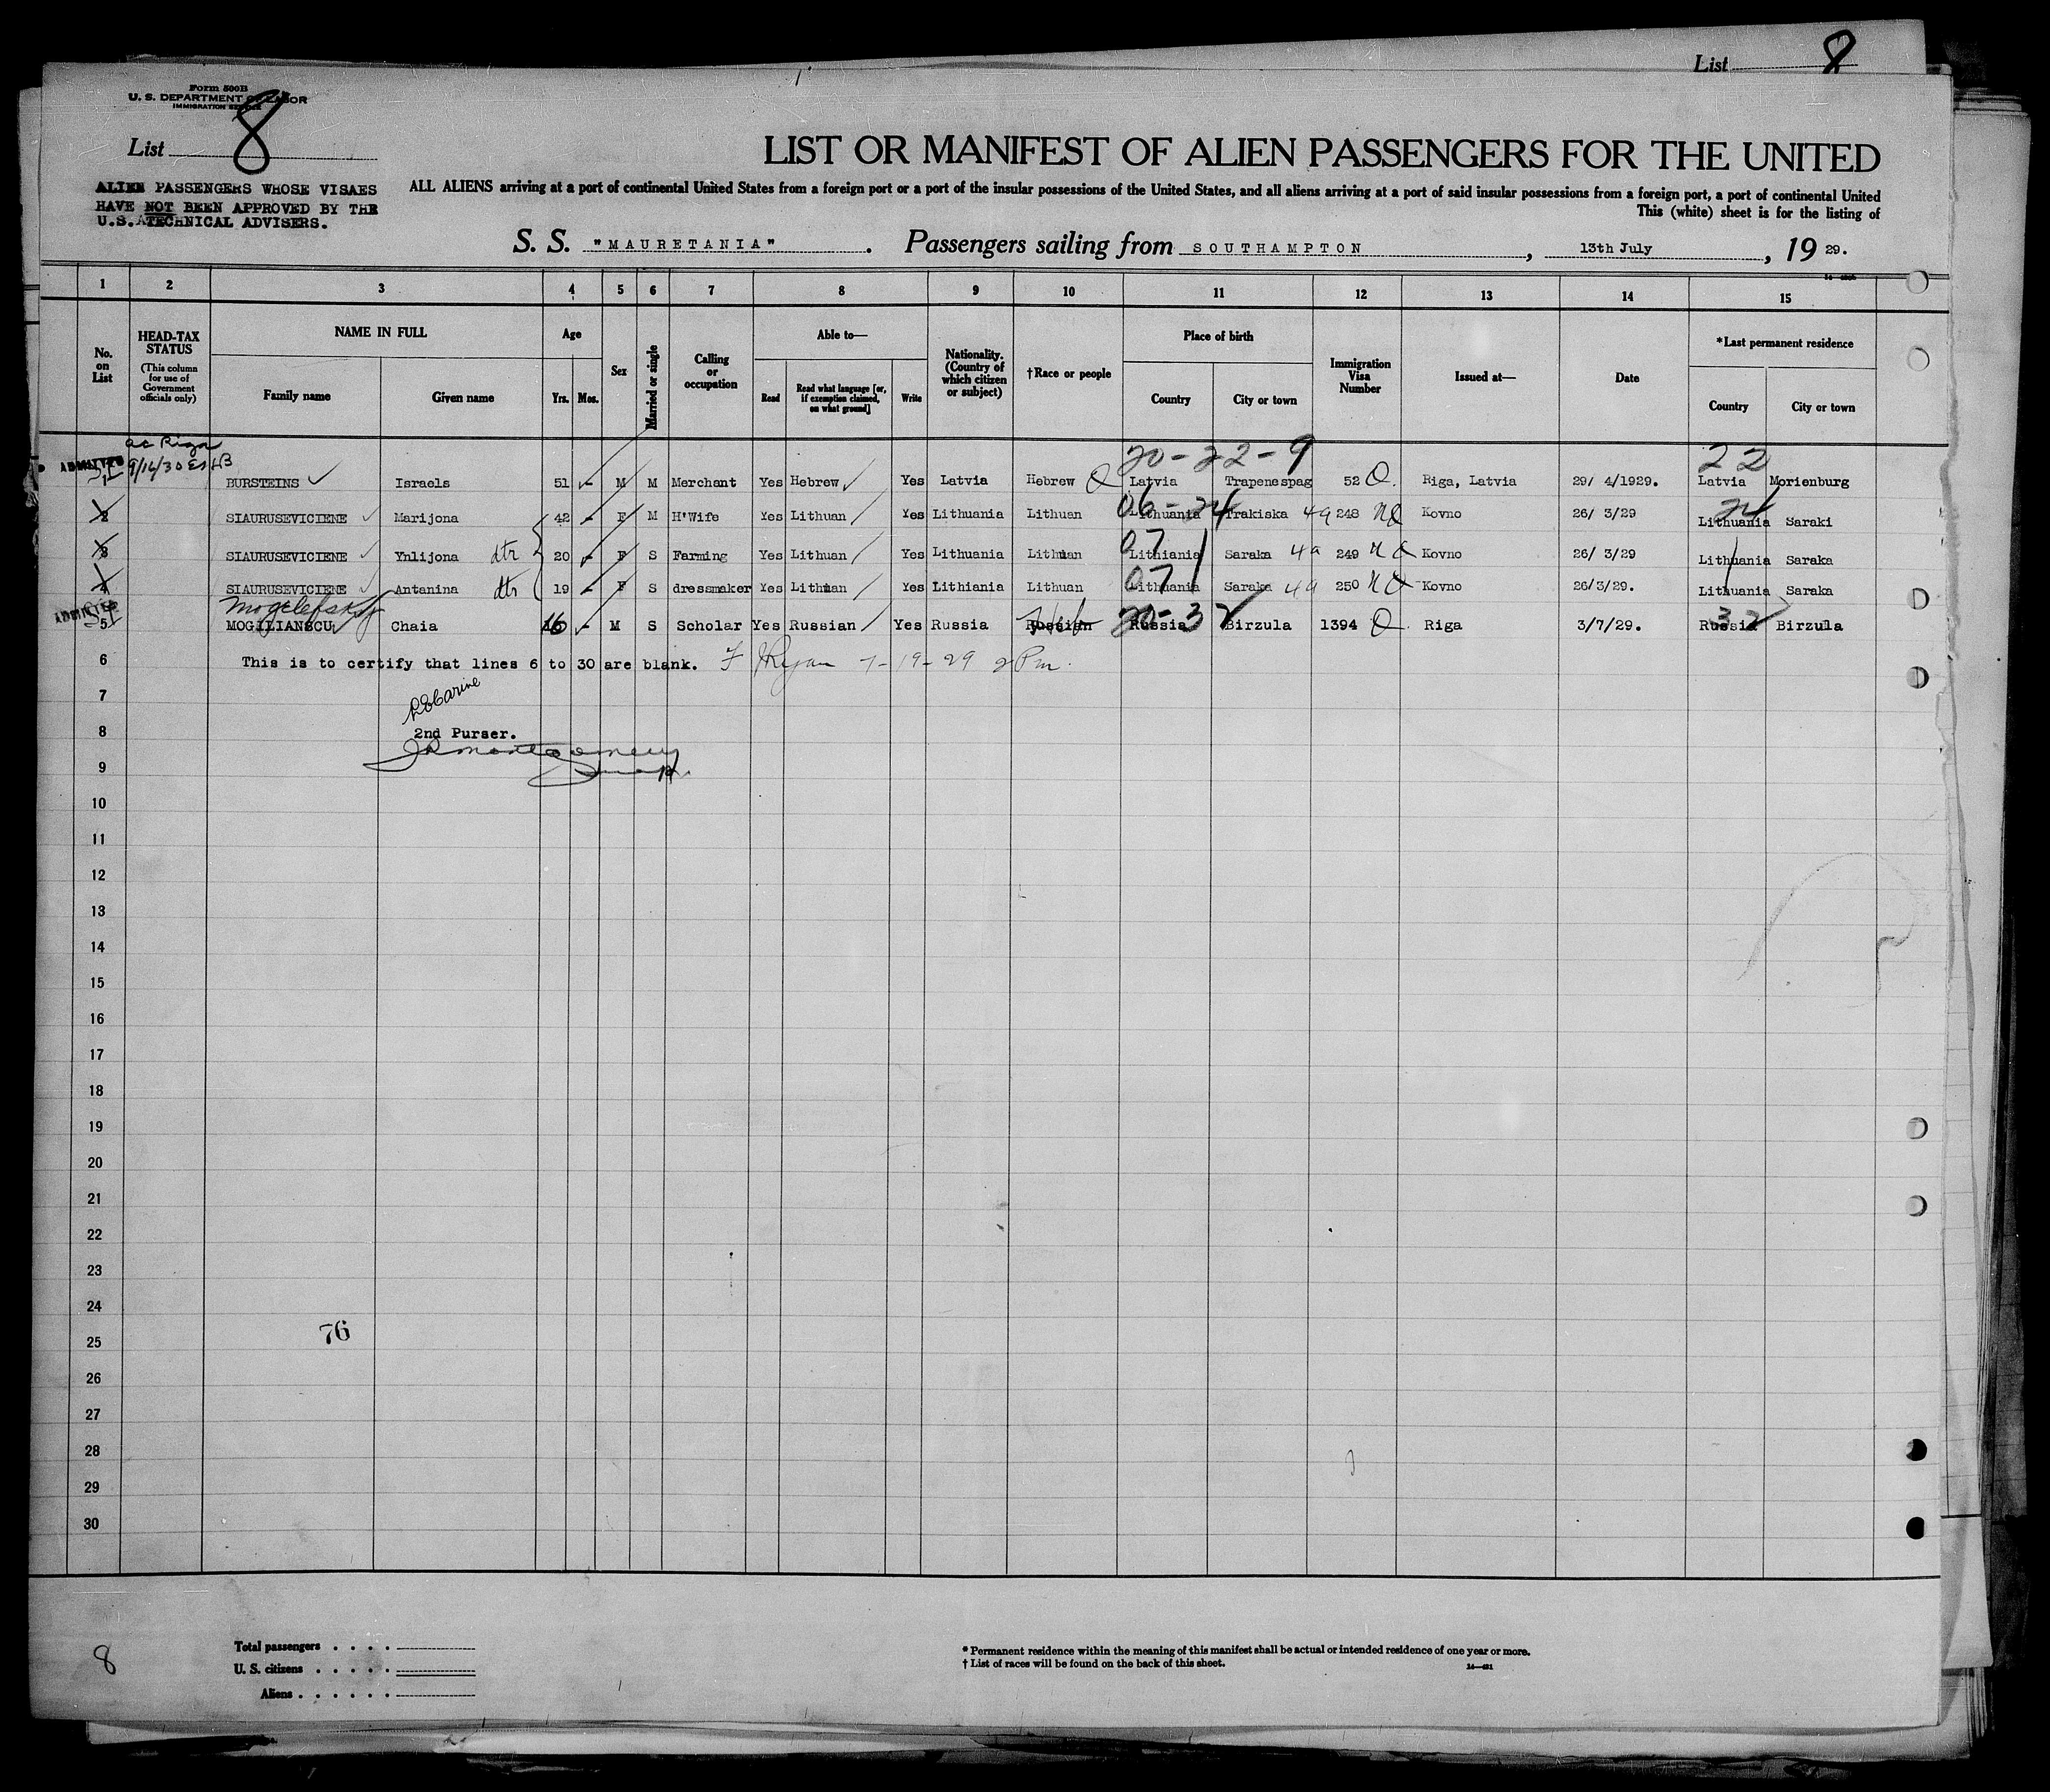 List 8
Form 500B
U. S. DEPARTMENT OF LABOR
IMMIGRATION SERVICE
List 8
LIST OR MANIFEST OF ALIEN PASSENGERS FOR THE UNITED
ALIEN PASSENGERS WHOSE VISAES
HAVE NOT BEEN APPROVED BY THE
U.S. TECHNICAL ADVISERS.
ALL ALIENS arriving at a port of continental United States from a foreign port or a port of the insular possessions of the United States, and all aliens arriving at a port of said insular possessions from a foreign port, a port of continental United
This (white) sheet is for the listing of
S. S. "MAURETANIA". Passengers sailing from SOUTHAMPTON, 13th July, 19 29.
1 2 3 4 5 6 7 8 9 10 11 12 13 14 15
No. on List
HEAD-TAX STATUS
(This column for use of Government officials only)
NAME IN FULL
Family name
Given name
Age
Yrs. Mos.
Sex
Married or single
Calling or occupation
Able to—
Read
Read what language [or, if exemption claimed, on what ground]
Write
Nationality. (Country of which citizen or subject)
†Race or people
Place of birth
Country
City or town
Immigration Visa Number
Issued at—
Date
*Last permanent residence
Country
City or town
ac Riga
20-22-9 22
ADMITTED 9/16/30
BURSTEINS Israels 51 - M M Merchant Yes Hebrew Yes Latvia Hebrew Latvia Trapenespag 52 Riga, Latvia 29/ 4/1929. Latvia Morienburg
06-24 24
2 SIAURUSEVICIENE Marijona 42 - F M H'Wife Yes Lithuan Yes Lithuania Lithuan Lithuania Trakiska 49 248 Kovno 26/ 3/29 Lithuania Saraki
07
3 SIAURUSEVICIENE Ynlijona dtr 20 - F S Farming Yes Lithuan Yes Lithuania Lithuan Lithiania Saraka 49 249 Kovno 26/ 3/29 Lithuania Saraka
07
4 SIAURUSEVICIENE Antanina dtr 19 - F S dressmaker Yes Lithuan Yes Lithiania Lithuan Lithuania Saraka 49 250 Kovno 26/3/29. Lithuania Saraka
Mogelefsky
ADMITTED
5 MOGILIANSCU Chaia 16 - M S Scholar Yes Russian Yes Russia Russian Heb 20-32 Russia Birzula 1394 Riga 3/7/29. Russia 32 Birzula
6 This is to certify that lines 6 to 30 are blank. F J Ryan 7-19-29 2 Pm.
7
8 2nd Purser.
JR Montgomery
9
10
11
12
13
14
15
16
17
18
19
20
21
22
23
24
76
25
26
27
28
29
30
8
Total passengers . . . .
U. S. citizens . . . . .
Aliens . . . . . .
* Permanent residence within the meaning of this manifest shall be actual or intended residence of one year or more.
† List of races will be found on the back of this sheet.